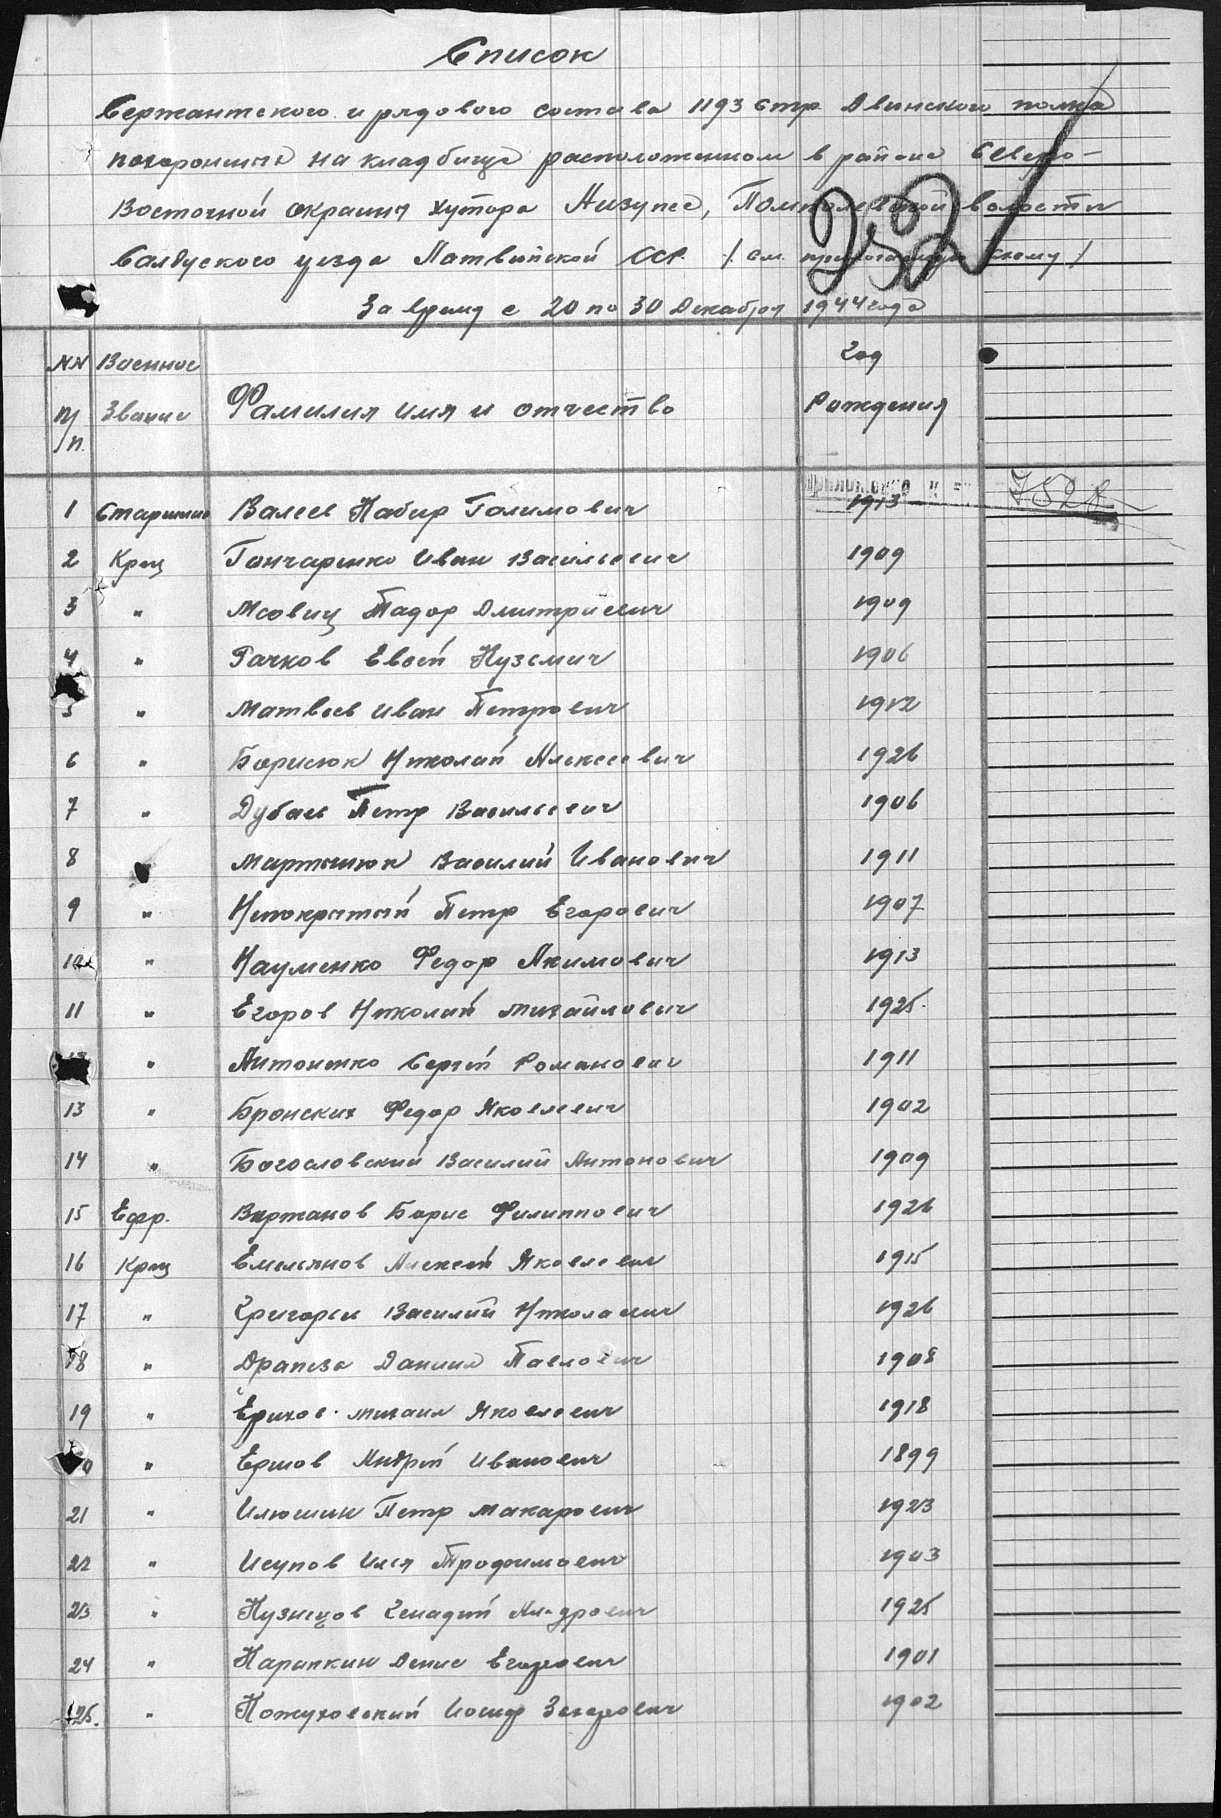 Список
Сержантского и рядового состава 1193 стр. Двинского полка
похороненных на кладбище расположенном в районе Северо-
Восточной окраины хутора волости
Салдуского уезда Латвийской ССР. / см. прилагаемую схему /
За время с 20 по 30 Декабря 1944 года
252
NN Военное Год
п/п. Звание Фамилия имя и отчество Рождения
Приложение к
1 Старшина Валеев Набир Галимович 1913
2 Кр-ец Гончаренко Иван Васильевич 1909
3 " Мсовиц Тадор Дмитриевич 1909
4 " Рачков Евсей Кузьмич 1906
5 " Матвеев Иван Петрович 1912
6 " Борисюк Николай Алексеевич 1926
7 " Дубаев Петр Васильевич 1906
8 " Мартынюк Василий Иванович 1911
9 " Непокрытый Петр Егорович 1907
10 " Науменко Федор Акимович 1913
11 " Егоров Николай Михайлович 1925.
12 " Антоненко Сергей Романович 1911
13 " Бронских Федор Яковлевич 1902
14 " Богословский Василий Антонович 1909
15 Ефр. Вартанов Борис Филиппович 1926
16 Кр-ец Емельянов Алексей Яковлевич 1915
17 " Григорьев Василий Николаевич 1926
18 " Драпеза Даниил Павлович 1908
19 " Ерихов Михаил Яковлевич 1918
20 " Ершов Андрей Иванович 1899
21 " Илюшин Петр Макарович 1923
22 " Исупов Илья Трофимович 1903
23 " Кузнецов Генадий Андреевич 1925
24 " Карапкин Денис Егорович 1901
25. " Кожуховский Иосиф Захарович 1902